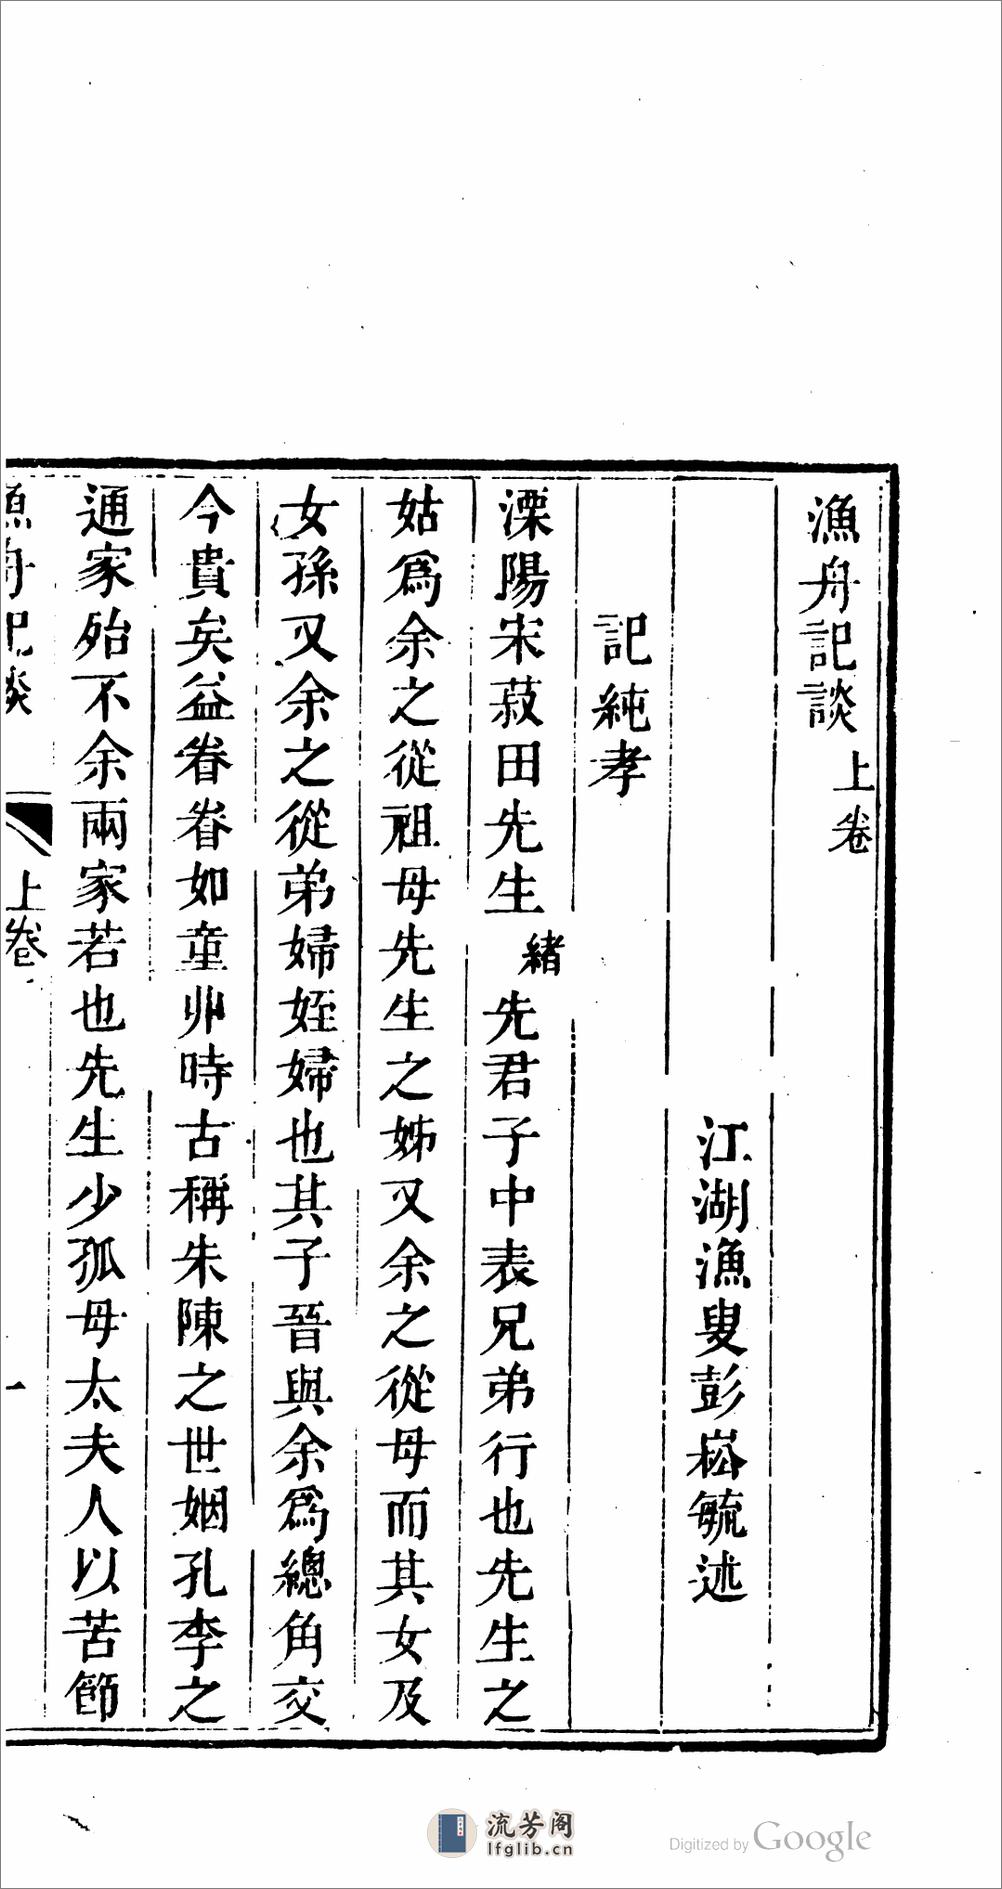 漁舟記談上卷
江湖漁叟彭崧毓述
記純孝
溧陽宋菽田先生緒先君子中表兄弟行也先生之
姑爲余之從祖母先生之姊又余之從母而其女及
女孫又余之從弟婦姪婦也其子晉與余爲總角交
今貴矣益眷眷如童丱時古稱朱陳之世姻孔李之
通家殆不余兩家若也先生少孤母太夫人以苦節
漁舟記談 上卷 一
流芳阁
lfglib.cn
Digitized by Google